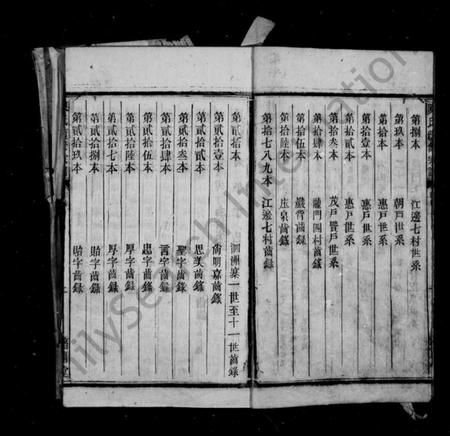 第捌本 江邊七村世系
第玖本 朝戸世系
第拾本 惠戸世系
第拾壹本 惠戸世系
第拾貳本 惠戸世系
第拾叁本 茂戸賢戸世系
第拾肆本 龍門四村齒錄
第拾伍本 嚴背齒錄
第拾陸本 庄泉齒錄
第拾七八九本 江邊七村齒錄
第貳拾本 泗洲寨一世至十一世齒錄
第貳拾壹本 尚明嘉齒錄
第貳拾貳本 思美齒錄
第貳拾叁本 聖字齒錄
第貳拾肆本 言字齒錄
第貳拾伍本 忠字齒錄
第貳拾陸本 厚字齒錄
第貳拾七本 厚字齒錄
第貳拾捌本 貽字齒錄
第貳拾玖本 貽字齒錄
FamilySearch International